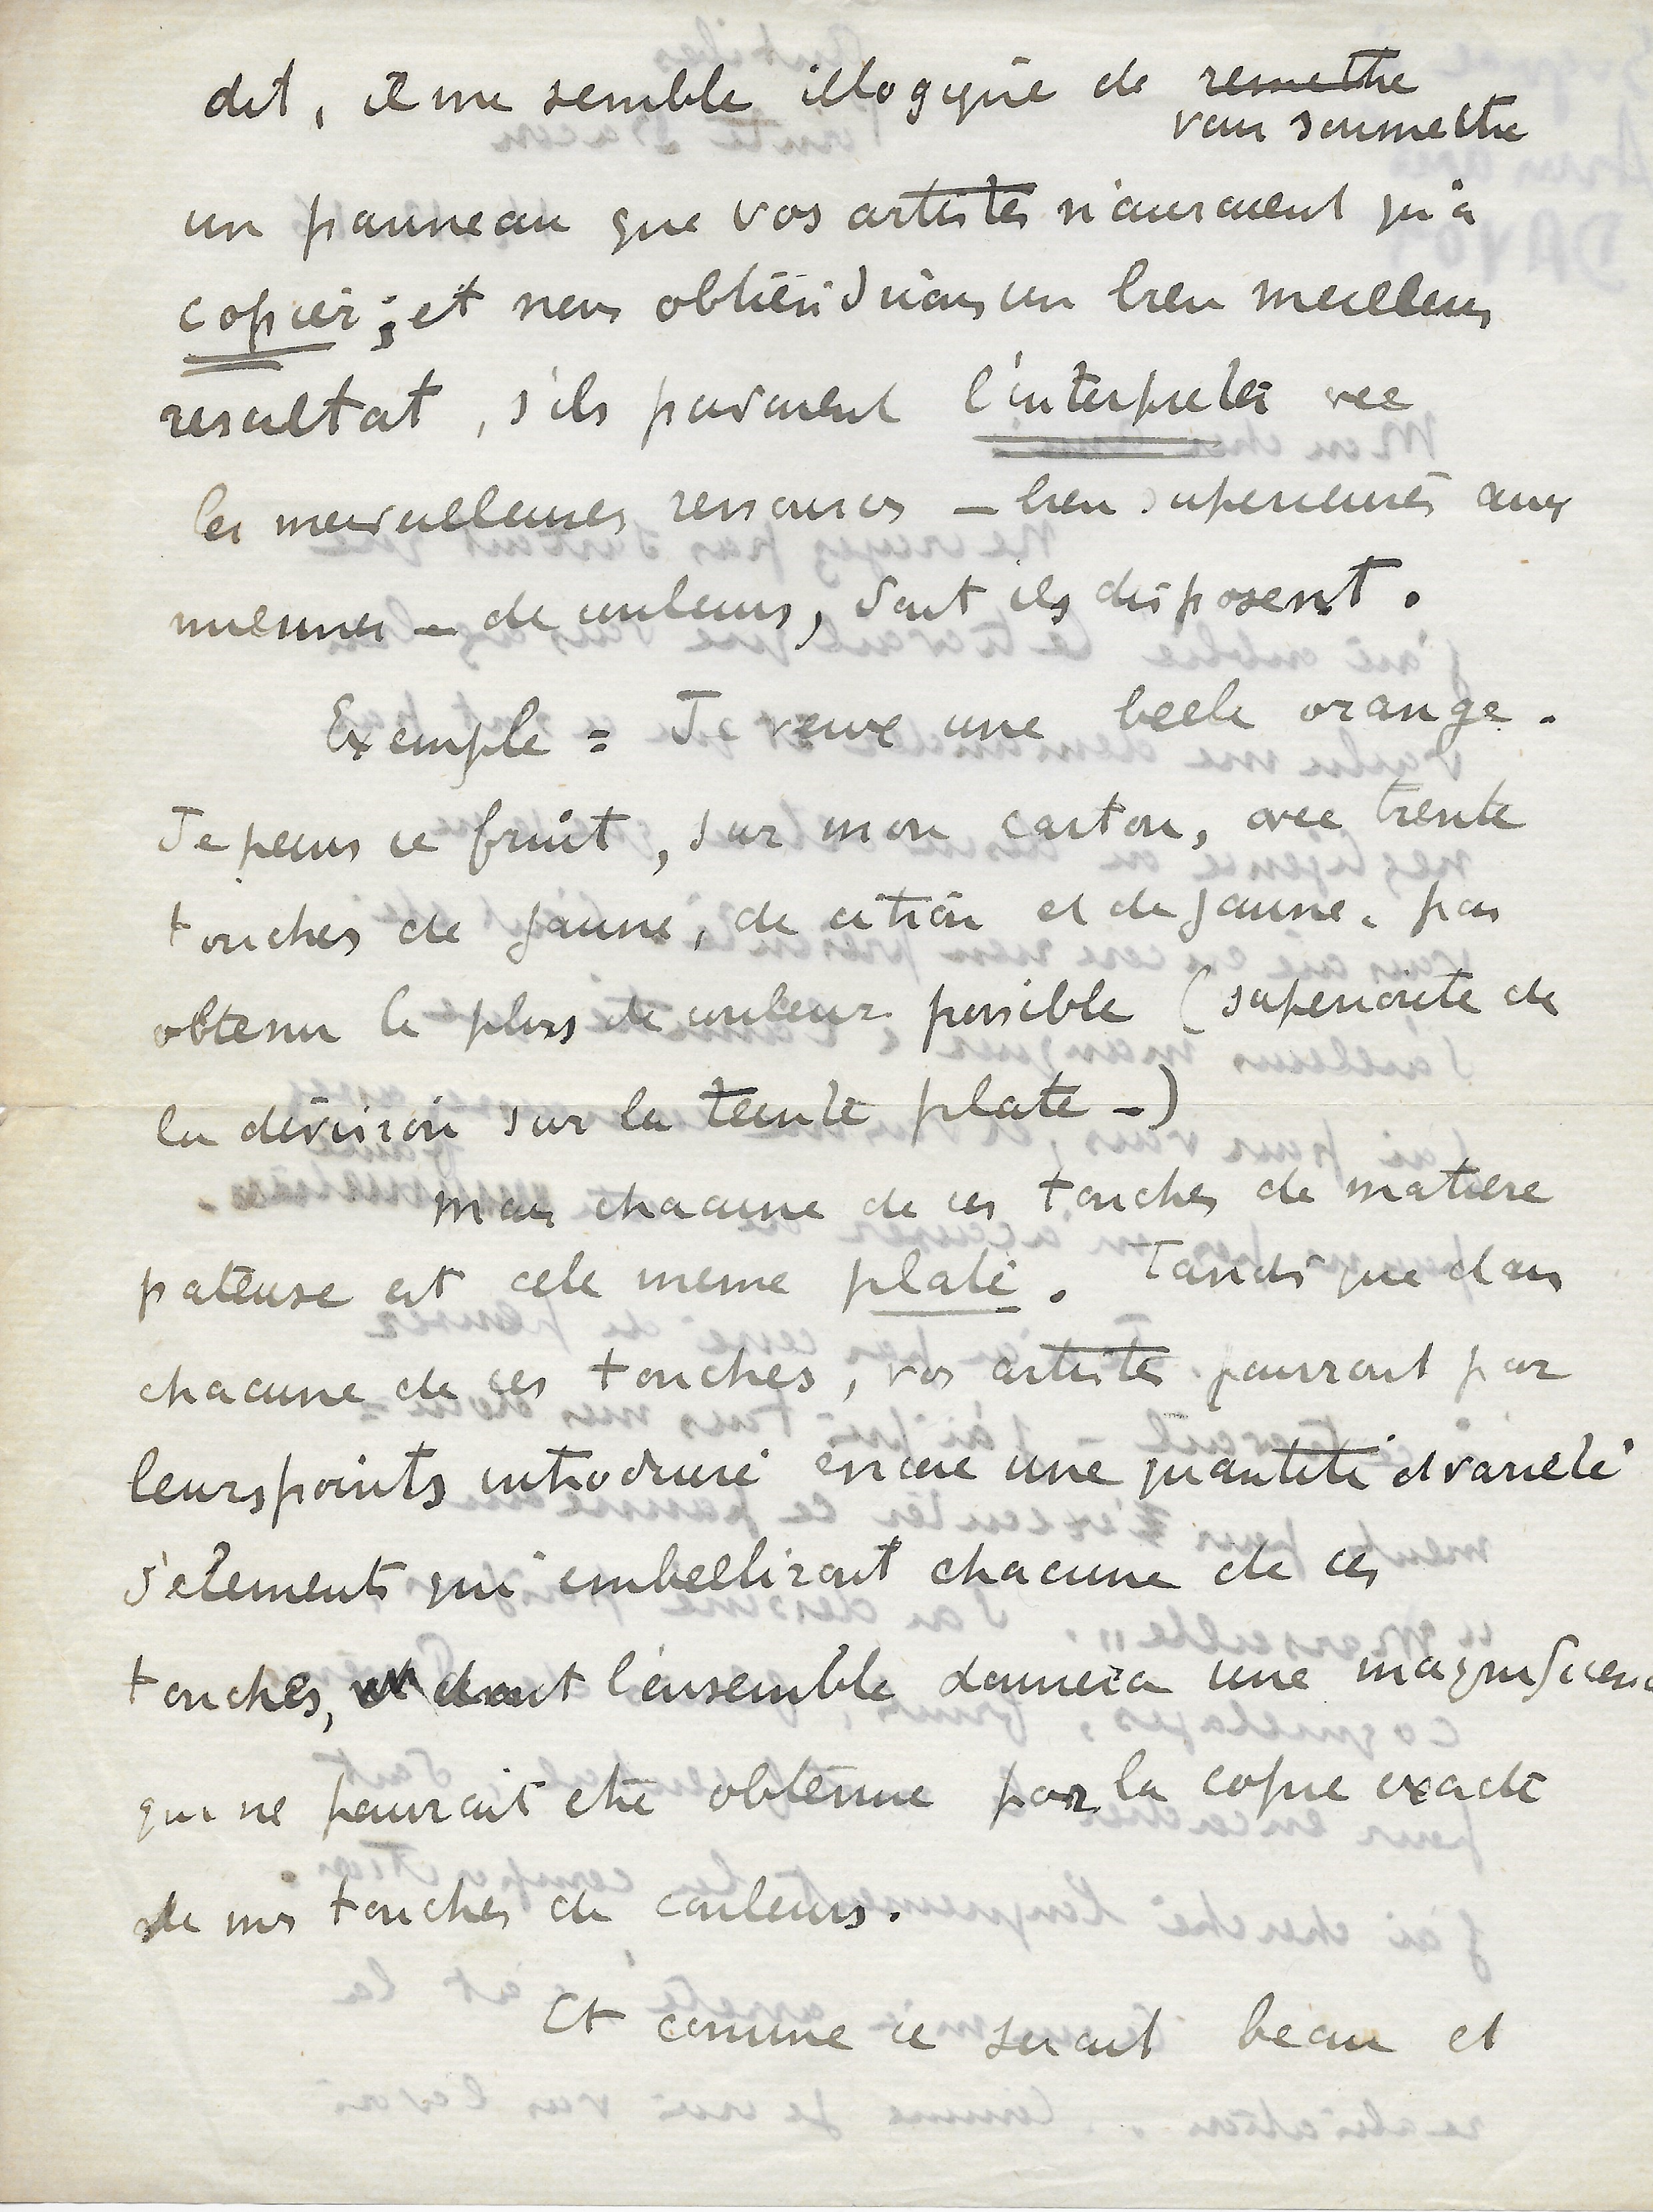 dit, il me semble illogique de remettre
vous soumettre
un panneau que vos artistes n'auraient qu'à
copier ; et nous obtiendrions un bien meilleur
resultat, s'ils pouvaient l'interpreter vec
les merveilleuses ressources – bien superieures aux
miennes – de couleurs, dont ils disposent.
Exemple = J veux une belle orange.
Je peins ce fruit, sur mon carton, avec trente
touches de jaune, de citron et de jaune. pour
obtenir le plus de couleur possible (superiorite de
la division sur la teinte plate –)
Mais chacune de ces touches de matiere
pateuse est elle meme plate. Tandis que dans
chacune de ces touches, vos artistes pourront par
leurs points introduire encore une quantité et varieté
d'elements qui embelliront chacune de ces
touches, dont l'ensemble donnera une magnificence
qui ne pourrait etre obtenue par la copie exacte
de mes touches de couleurs.
Et comme ce serait beau et